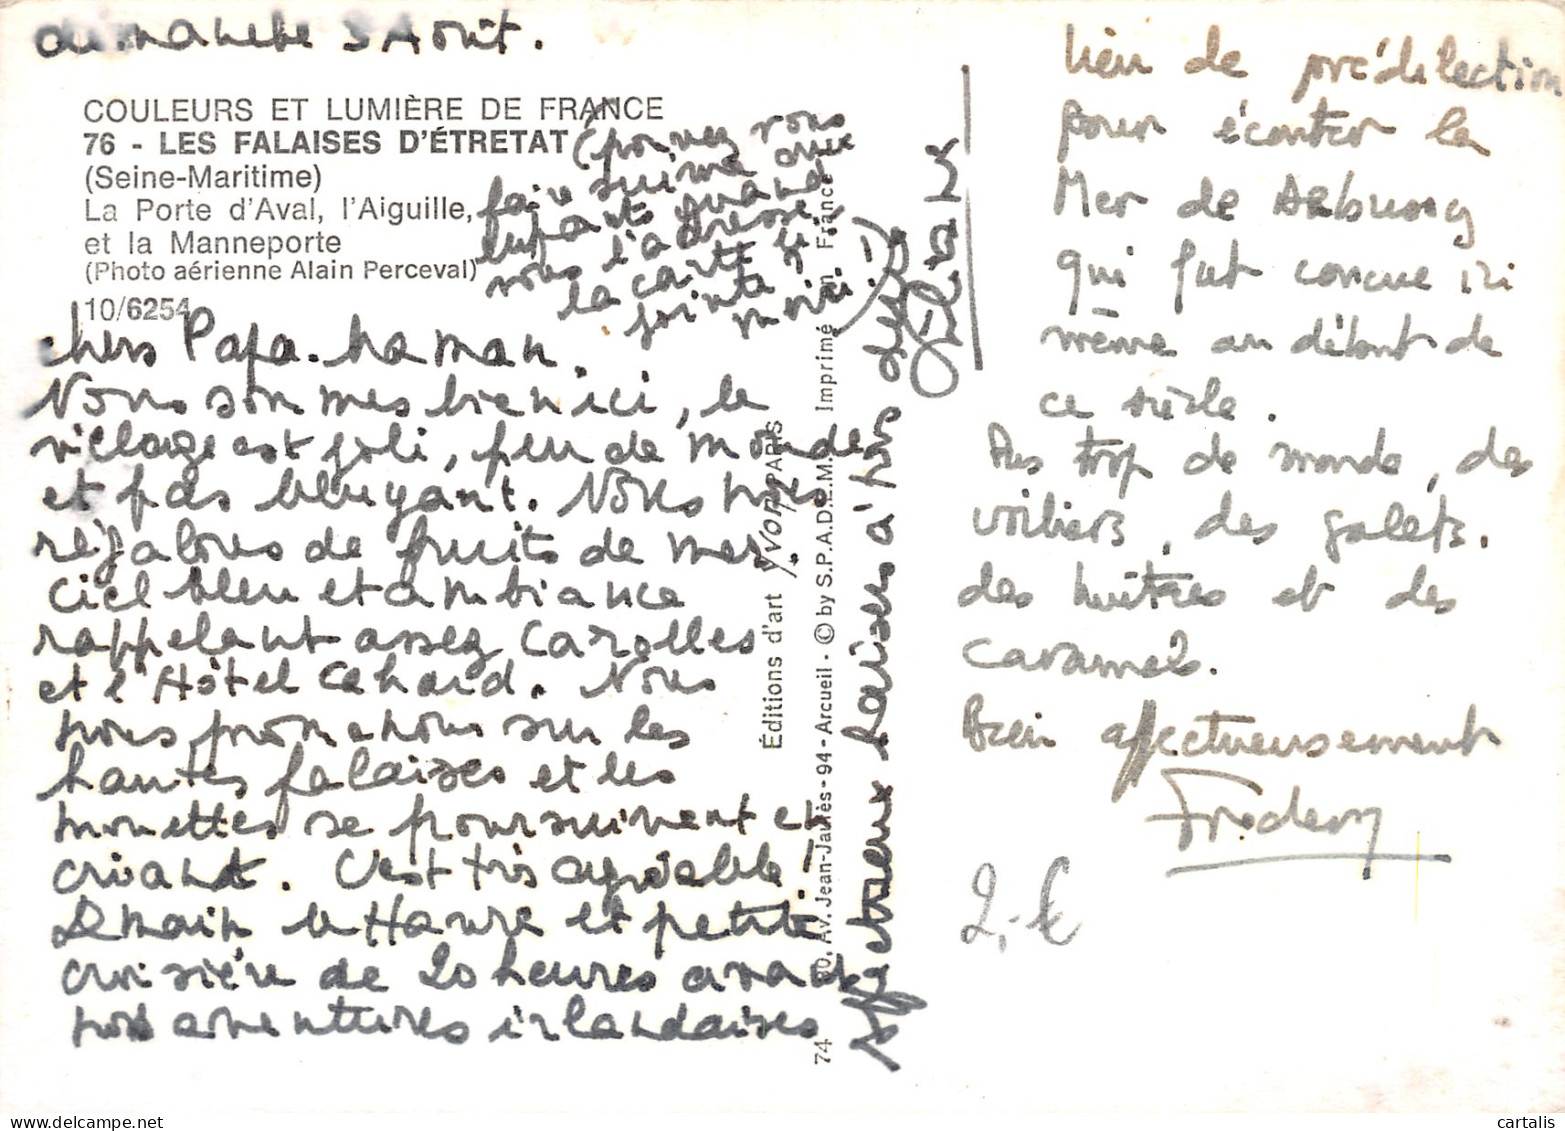 dimanche 3 Août.
COULEURS ET LUMIÈRE DE FRANCE
76 - LES FALAISES D'ÉTRETAT
(Seine-Maritime)
La Porte d'Aval, l'Aiguille,
et la Manneporte
(Photo aérienne Alain Perceval)
10/6254
(pouvez vous
faire suivre aux
enfants quand
vous l'adresse
la carte ci
jointe ?
merci !)
chers Papa-Maman
Nous sommes bien ici, le
village est joli, peu de monde
et pas bruyant. Nous nous
régalons de fruits de mer.
Ciel bleu et ambiance
rappelant assez Carolles
et l'Hôtel Cahard. Nous
nous promenons sur les
hautes falaises et les
mouettes se poursuivent en
criant. C'est très agréable !
Demain le Havre et petite
croisière de 20 heures avant
nos aventures irlandaises
Éditions d'art YVON, PARIS
74 30, Av. Jean-Jaurès - 94 - Arcueil - © by S.P.A.D.E.M. Imprimé en France
Affectueux baisers à tous deux
lieu de prédilection
pour écouter la
Mer de Debussy
qui fut conçue ici
même au début de
ce siècle.
Pas trop de monde, des
voiliers, des galets.
des huîtres et des
caramels.
Bien affectueusement
Frédéry
2,-€
delcampe.net
cartalis